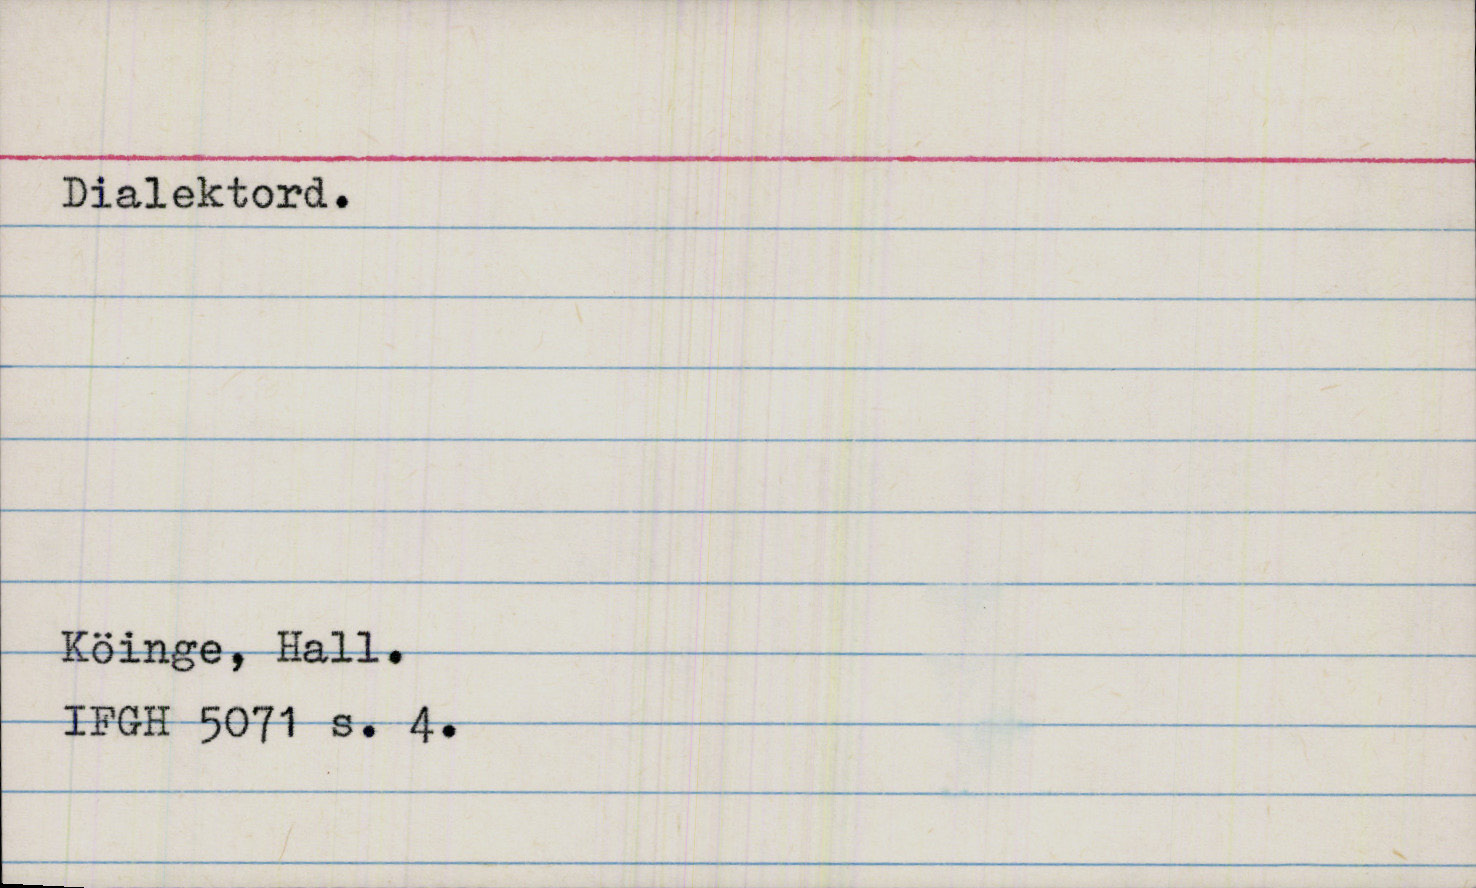 Dialektord.
Köinge, Hall.
IFGH 5071 s. 4.